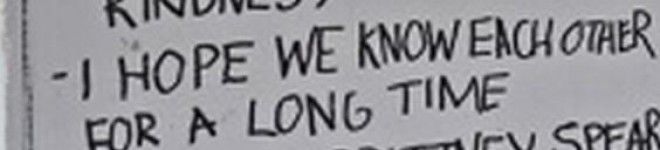 KINDNESS,
- I HOPE WE KNOW EACH OTHER
FOR A LONG TIME